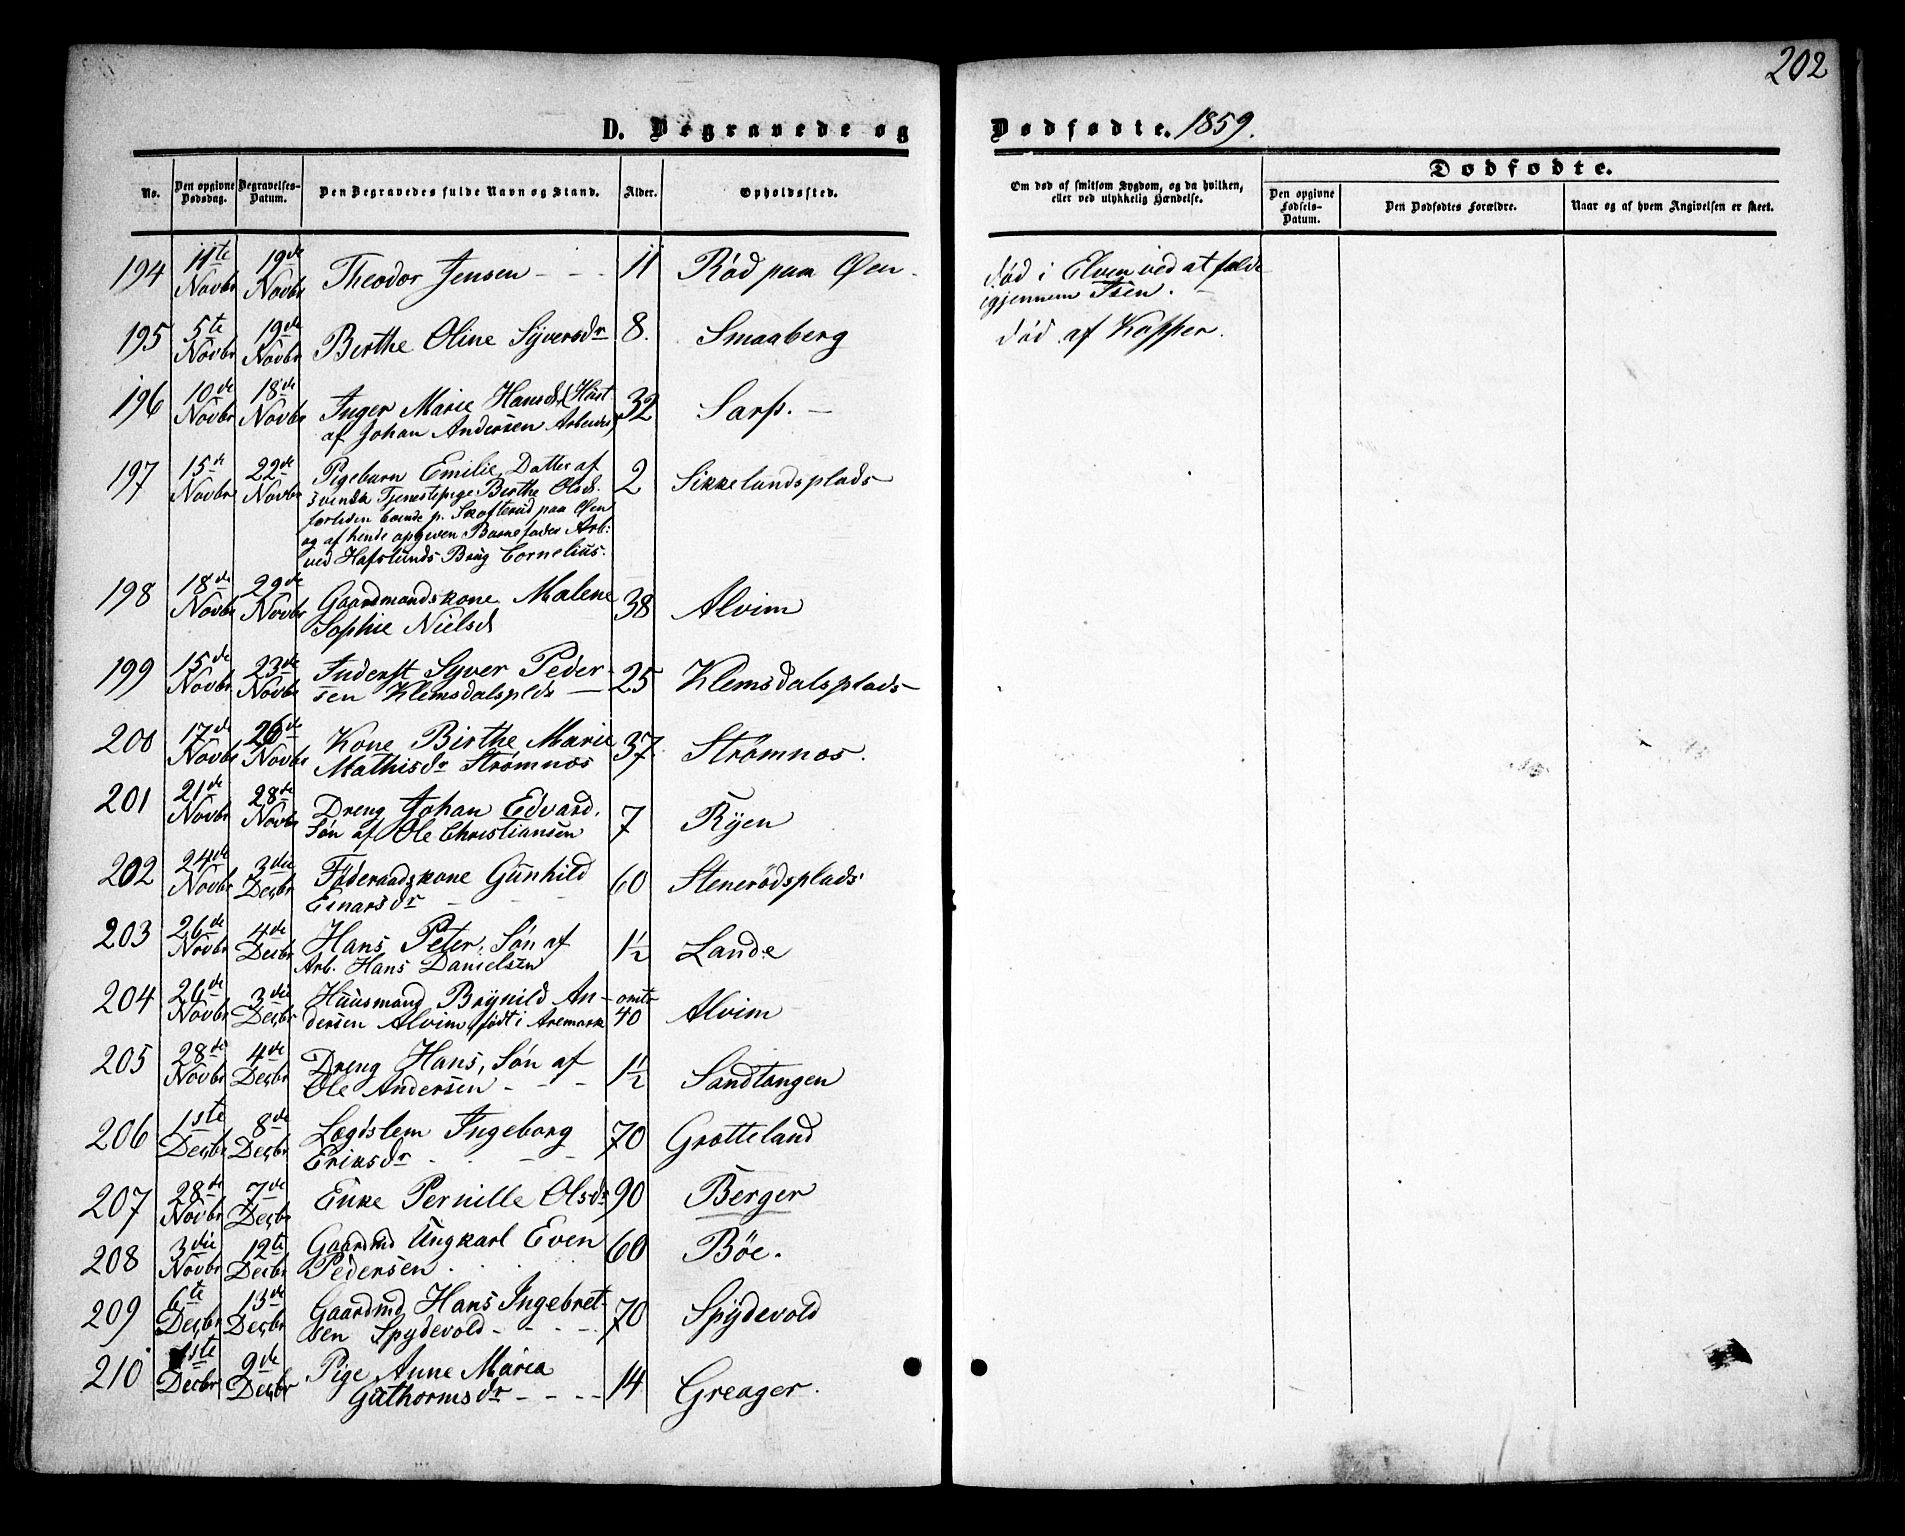 202
D. Begravede og Dødfødte. 1859.
No.
Den opgivne Dødsdag.
Begravelses-Datum.
Den Begravedes fulde Navn og Stand.
Alder.
Opholdssted.
Om død af smitsom Sygdom, og da hvilken, eller ved ulykkelig Hændelse.
Dødfødte.
Den opgivne Fødsels-Datum.
Den Dødfødtes Forældre.
Naar og af hvem Angivelsen er skeet.
194 11te Novbr 19de Novbr Theodor Jensen - - - 11 Röd paa Øen - död i Elven ved at falde
igjennem Isen. -
195 5te Novbr 19de Novbr Birthe Oline Syversdr 8. Smaaberg död af Kopper.
196 10de Novbr 18de Novbr Inger Marie Hansd (Hust 32 Sarp. -
af Johan Andersen Arbeider)
197 15de Novbr 22de Novbr Pigebarn Emilie, Datter af 2 Sikkelandsplads
svensk Tjenestepige Birthe Olsd.
fortiden boende p. Skofteröd paa Øen
og af hende opgiven Barnefader Arb:
ved Hafslunds Brug Cornelius.
198 18de Novbr 29de Novbr Gaardmandskone Malene 38 Alvim
Sophie Nielsd
199 15de Novbr 23de Novbr Inderst Syver Peder- 25 Klemsdalsplads -
sen Klemsdalsplds -
200 17de Novbr 26de Novbr Kone Birthe Marie 37. Strømnæs.
Mathisdr Strømnæs
201 21de Novbr 28de Novbr Dreng Johan Edvard, 7 Ryen
Sön af Ole Christiansen
202 24de Novbr 3die Decbr Föderaadskone Gunhild 60 Stenerödsplads
Einarsdr - - -
203 26de Novbr 4de Decbr Hans Peter, Sön af 1½ Lande
Arb. Hans Danielsen
204 26de Novbr 3die Decbr Huusmand Brynild An- omtr 40 Alvim
dersen Alvim, født i Aremark
205 28de Novbr 4de Decbr Dreng Hans, Sön af 1½ Sandtangen
Ole Andersen - - -
206 1ste Decbr 8de Decbr Lægdslem Ingeborg 70 Grotteland
Eriksdr - - - -
207 28de Novbr 7de Decbr Enke Pernille Olsdr 90 Berger
208 3die Novbr 12te Decbr Gaardmd Ungkarl Even 60 Böe.
Pedersen. . . .
209 6te Decbr 13de Decbr Gaardmd Hans Ingebret- 70 Spydevold
sen Spydevold - - -
210 1ste Decbr 9de Decbr Pige Anne Maria 14 Greager.
Guthormsdr - - - -